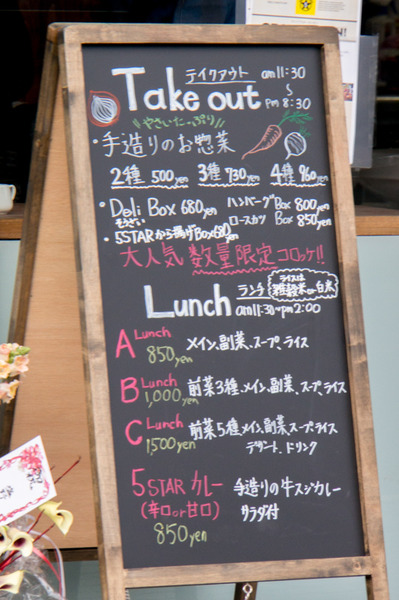 Take out テイクアウト am11:30
〜
pm8:30
\\やさいたっぷり//
・手造りのお惣菜
2種 500yen 3種 730yen 4種 960yen
・Deli Box 680yen ハンバーグBox 800yen
そうざい ロースカツ Box 850yen
・5STARから揚げBox680yen
大人気 数量限定 コロッケ!!
Lunch ランチ am11:30~pm2:00
ライスは
雑穀米or白米
A Lunch メイン、副菜、スープ、ライス
850yen
B Lunch 前菜3種、メイン、副菜、スープ、ライス
1,000yen
C Lunch 前菜5種、メイン、副菜、スープ、ライス
1,500yen デザート、ドリンク
5STARカレー 手造りの牛スジカレー
(辛口or甘口) サラダ付
850yen